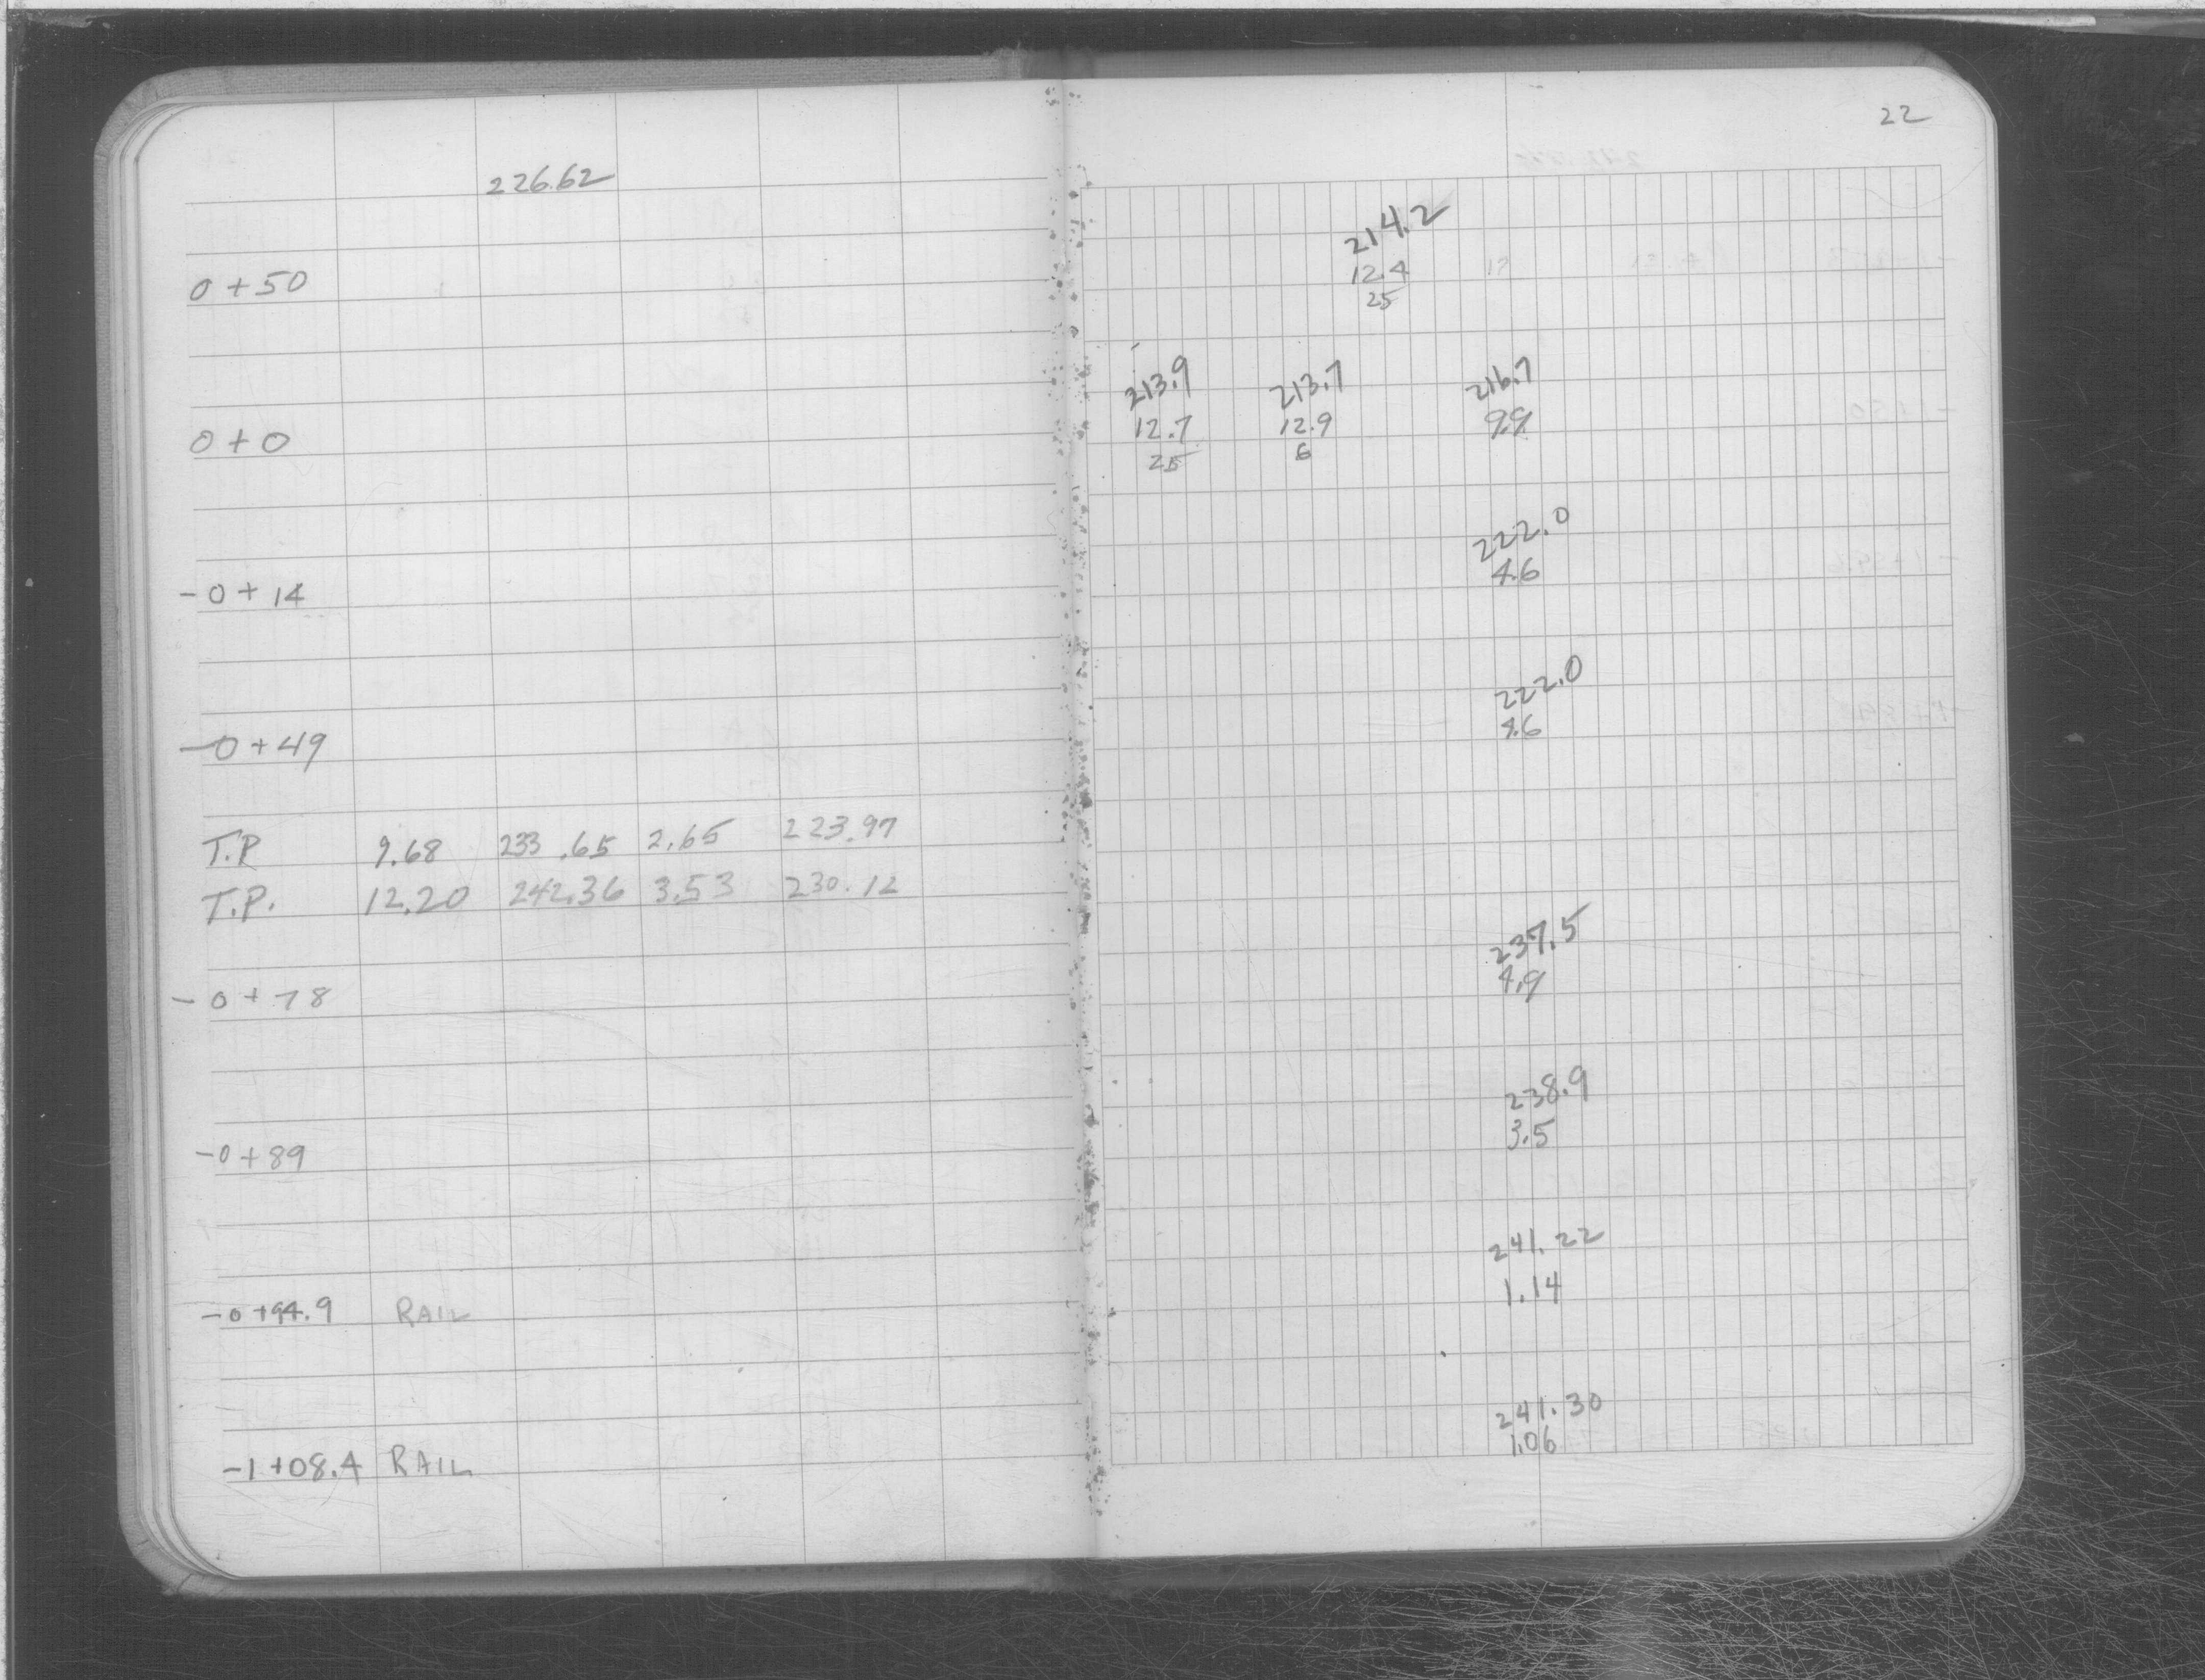 22
226.62
214.2
0+50 12.4
25
213.9 213.7 216.7
0+0 12.7 12.9 9.9
25 6
222.0
-0+14 4.6
222.0
-0+49 4.6
T.P 9.68 233.65 2.65 223.97
T.P. 12.20 242.36 3.53 230.12
237.5
-0+78 4.9
238.9
-0+89 3.5
241.22
-0+94.9 RAIL 1.14
241.30
-1+08.4 RAIL 1.06